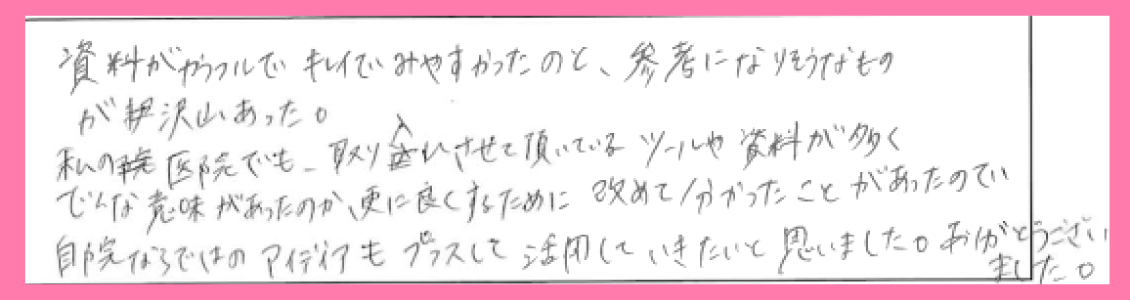 資料がカラフルでキレイでみやすかったのと、参考になりそうなもの
が沢山あった。
私の医院でも、取り入れさせて頂いているツールや資料が多く
どんな意味があったのか、更に良くするために改めて分かったことがあったので
自院ならではのアイディアもプラスして活用していきたいと思いました。ありがとうござい
ました。